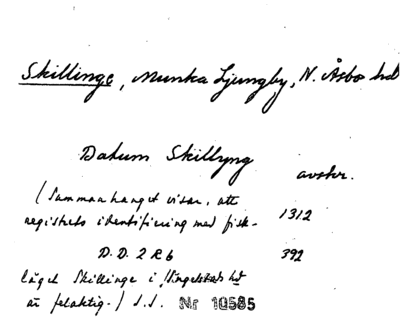 Skillinge, Munka Ljungby, N. Åsbo hd
Datum Skillyng
avskr.
(Sammanhanget visar, att
registrets identifiering med fisk-
1312
D.D. 2 R b
392
läget Skillinge i Ingelstads hd
är felaktig.) S.S. Nr 10585